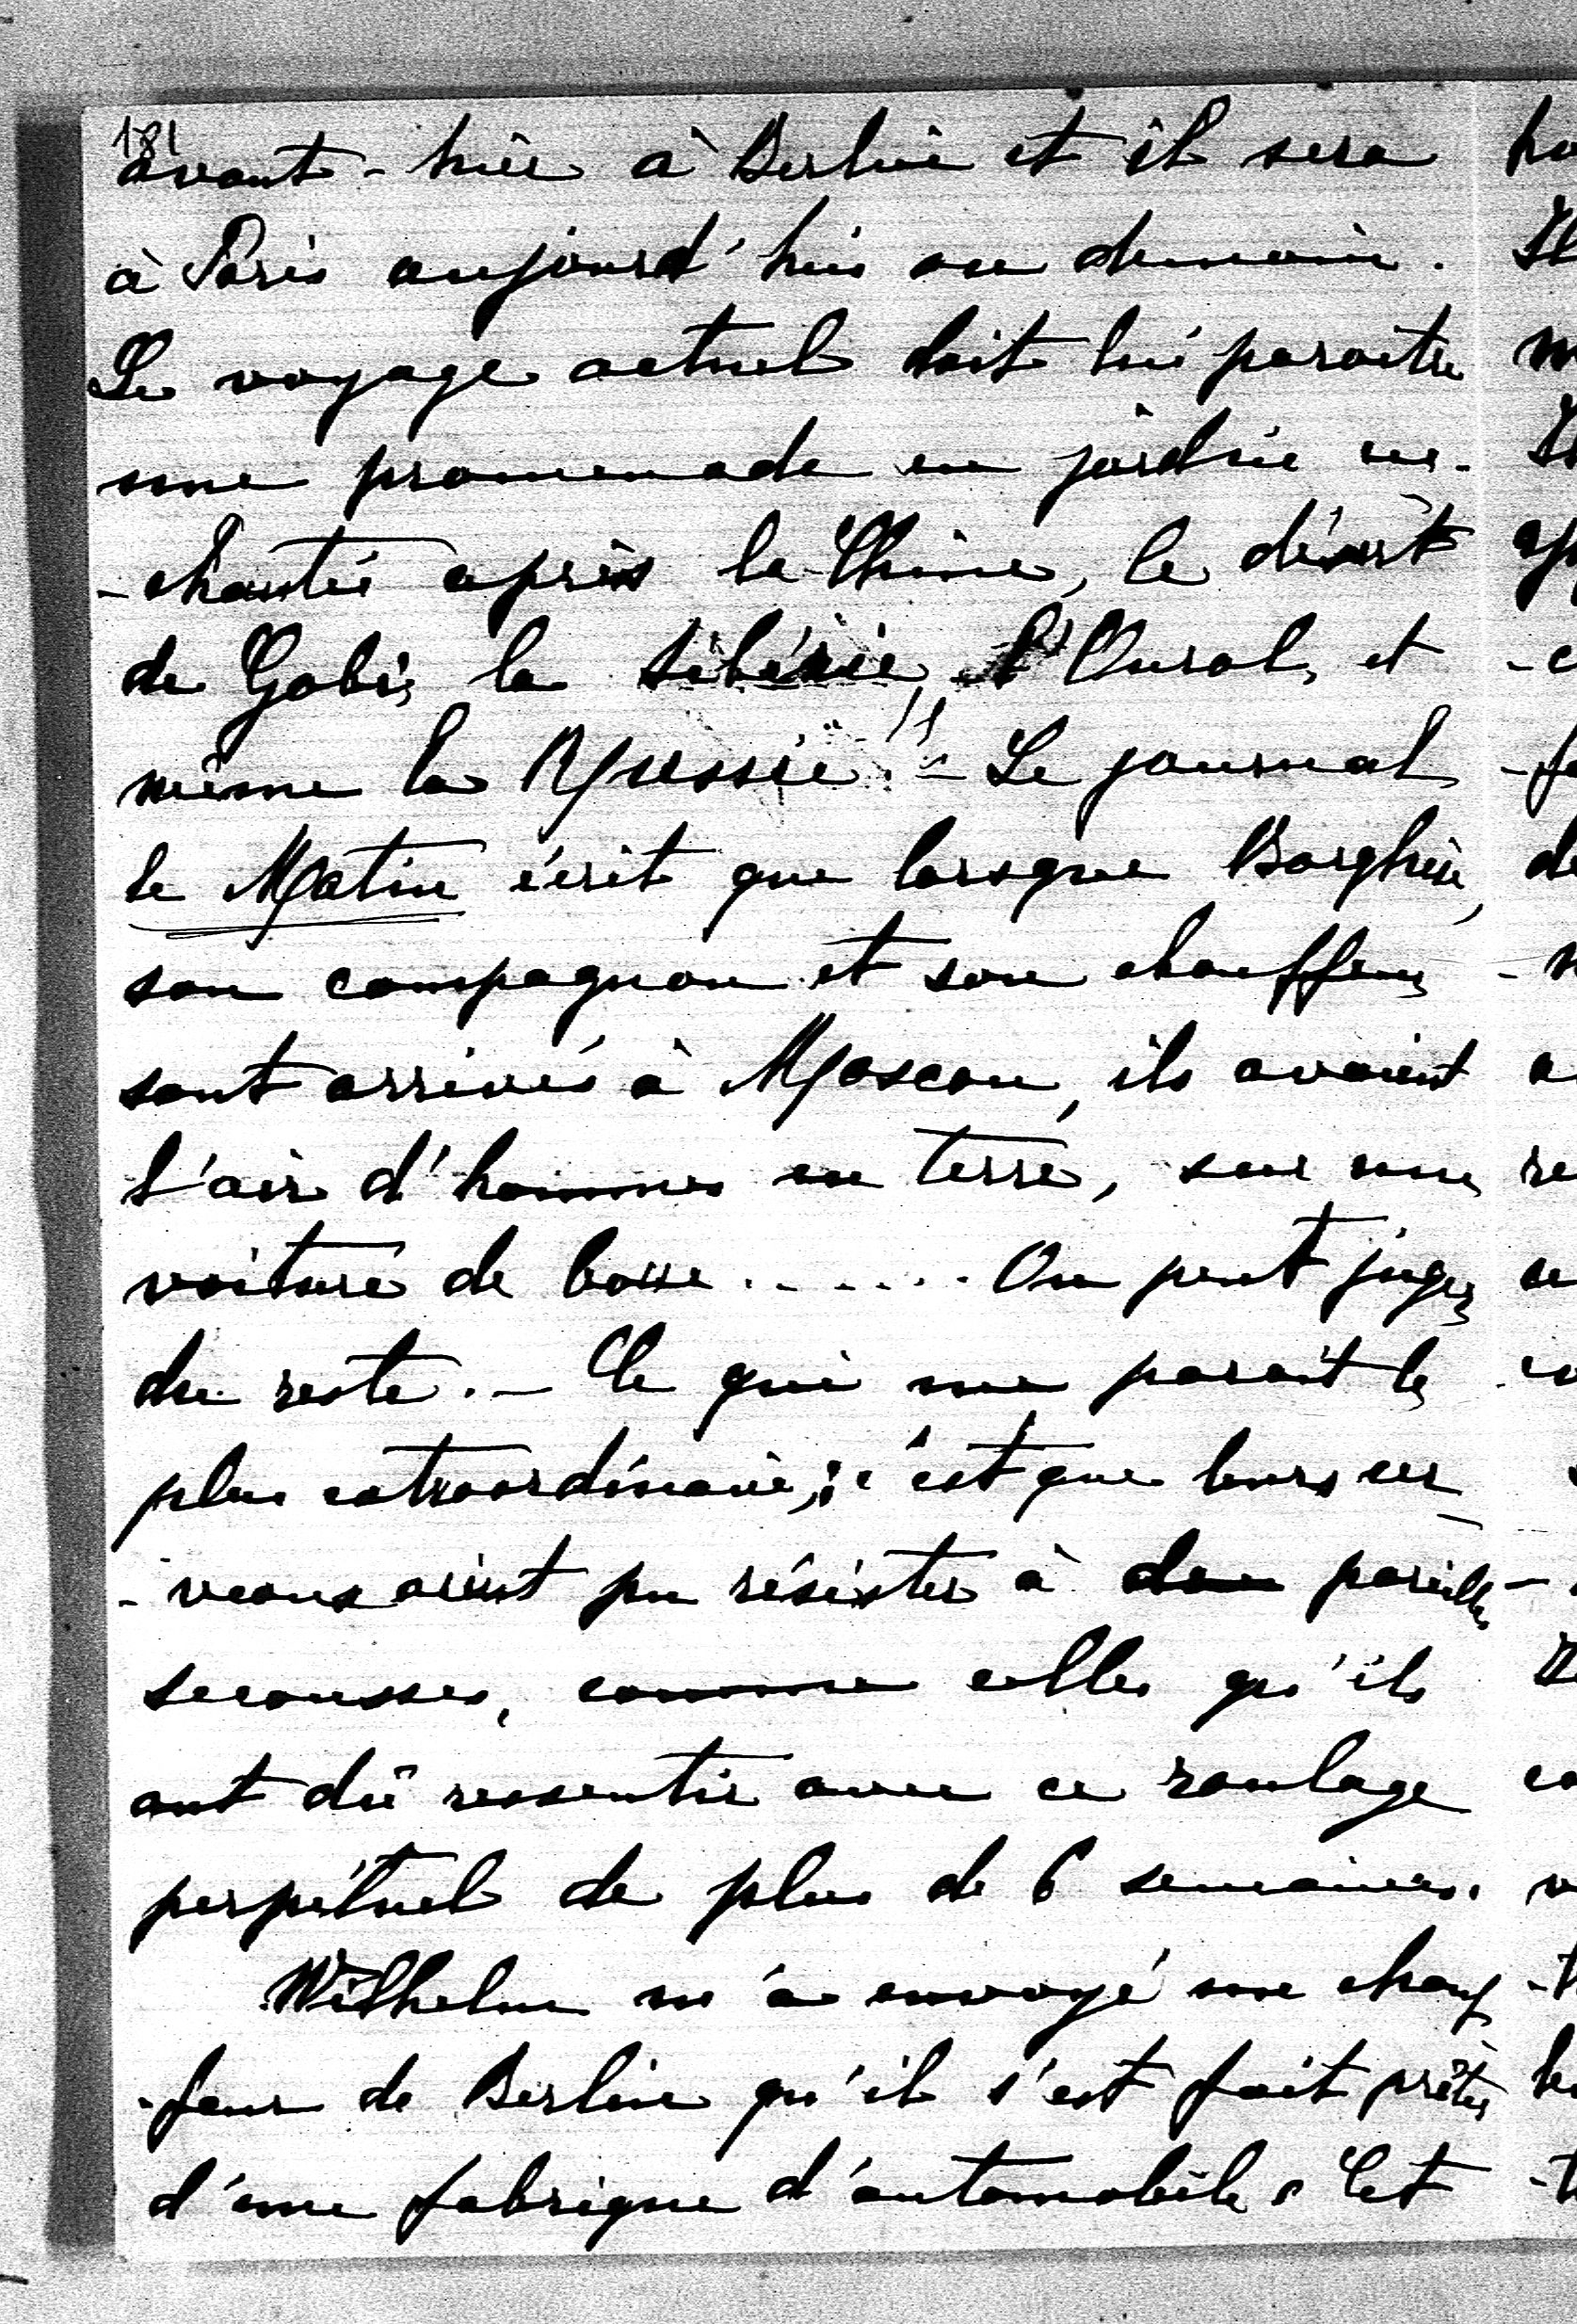 181
avant-hier à Berlin et il sera
à Paris aujourd'hui ou demain.
Le voyage actuel doit lui paraître
une promenade en jardin en-
-chanté après la Chine, le désert
de Gobi, la Sibérie, l'Oural, et
même la Russie!! - Le journal
le Matin écrit que lorsque Borghèse,
son compagnon et son chauffeur
sont arrivés à Moscou, ils avaient
l'air d'hommes en terre, sur une
voiture de boue...... On peut juger
du reste. - Ce qui me paraît le
plus extraordinaire, c'est que leurs cer
-veaux aient pu résister à de pareilles
secousses, comme celles qu'ils
ont dû ressentir avec ce roulage
perpétuel de plus de 6 semaines.
Wilhelm m'a envoyé un chauf
-feur de Berlin qu'il s'est fait prêter
d'une fabrique d'automobiles. Cet